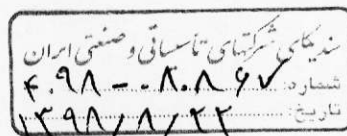 سندیکای شرکتهای تاسیساتی و صنعتی ایران
شماره: ۴۰۹۸-۰۸۰۸۶۷
تاریخ: ۱۳۹۸/۸/۲۲